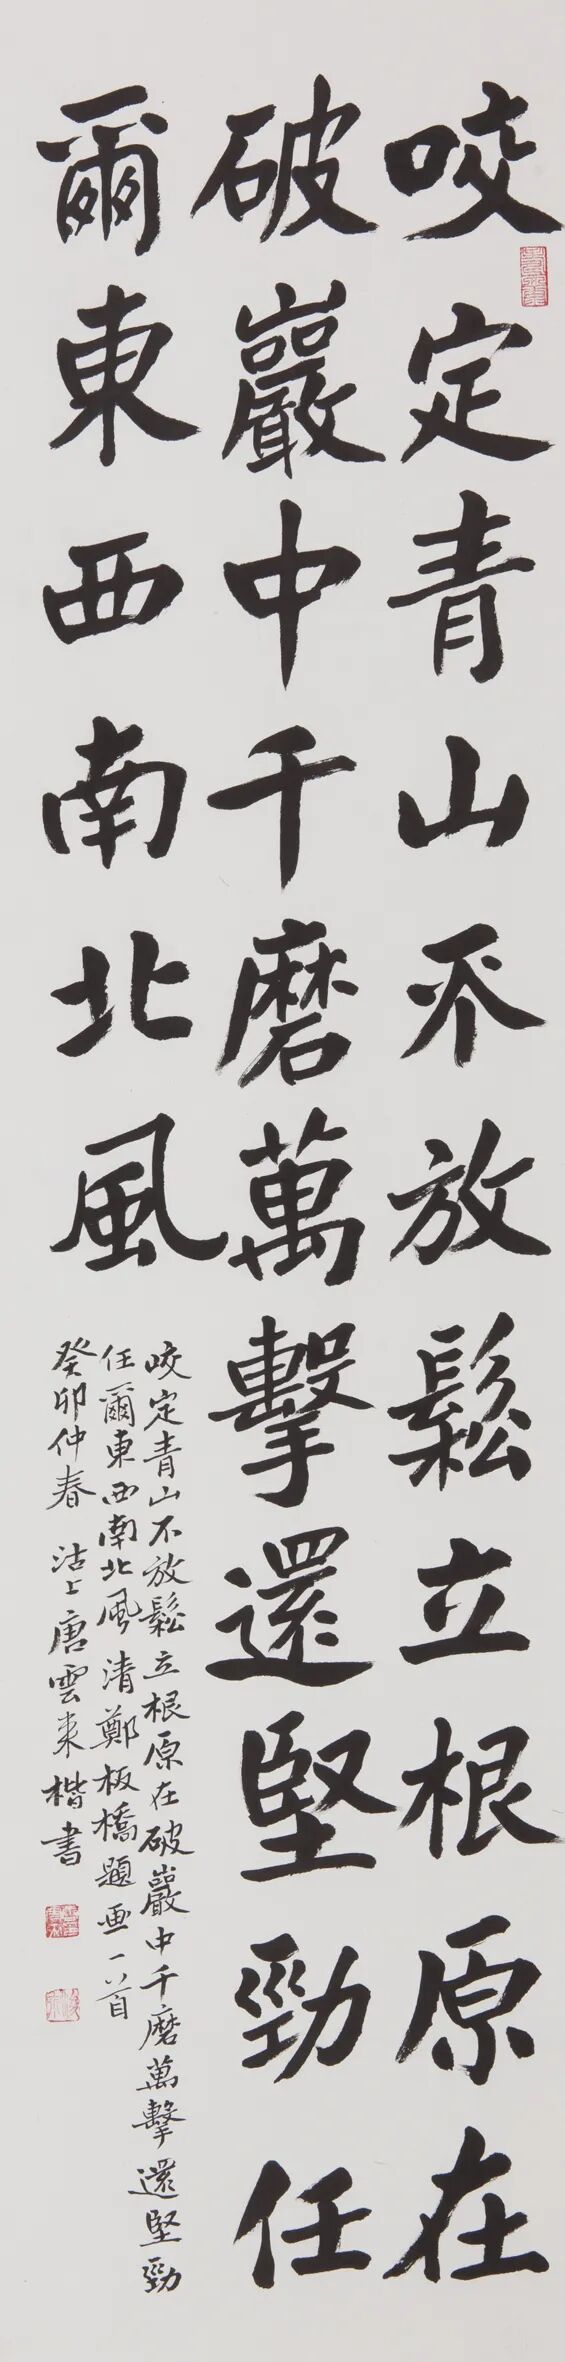 咬定青山不放鬆立根原在
破巖中千磨萬擊還堅勁任
爾東西南北風
咬定青山不放鬆立根原在破巖中千磨萬擊還堅勁
任爾東西南北風清鄭板橋題画一首
癸卯仲春沽上唐雲来楷書